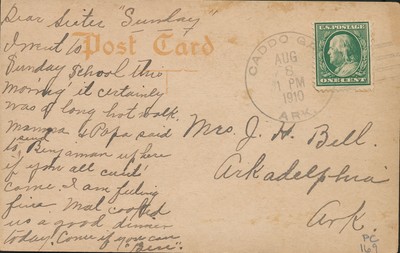 Dear Sister "Sunday"
I went to
Post Card
Sunday School this
morning it certainly
was a long hot walk.
Mamma & Papa said
to send Benjaman up here
if you all can't
come. I am feeling
fine. Mat cooked
us a good dinner
today. Come if you can
"Bess".
U.S. POSTAGE
ONE CENT
CADDO GAP
AUG
8
1 PM
1910
ARK.
Mrs. J. H. Bell.
Arkadelphia
Ark.
PC
169